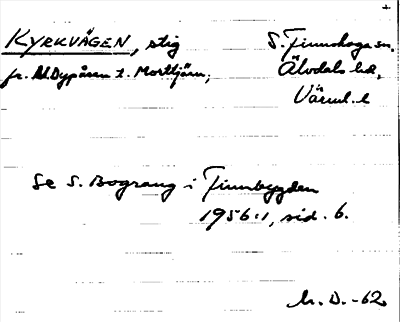 KYRKVÄGEN, stig
S. Finnskoga sn,
fr. N.Dypåsen t. Morttjärn;
Älvdals hd,
Värml. l
Se S. Bograng i Finnbygden
1956:1, sid. 6.
M. D. -62